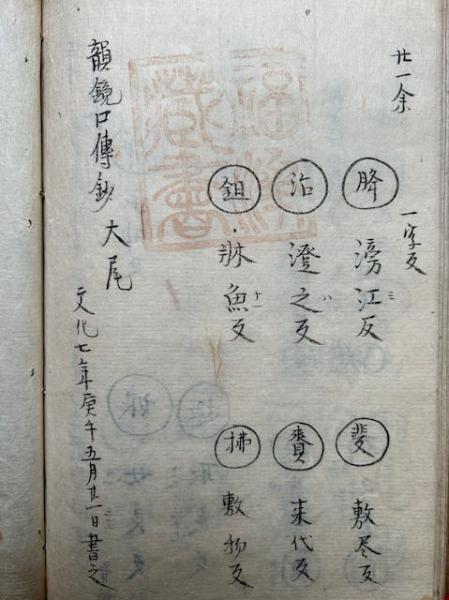 廿一余
一字反
胮 滂江反 三
斐 敷尽反
治 澄之反 ハ
賚 来代反
鉏 牀魚反 十一
拂 敷物反
韻鏡口傳鈔 大尾
文化七年庚午五月廿一日書之